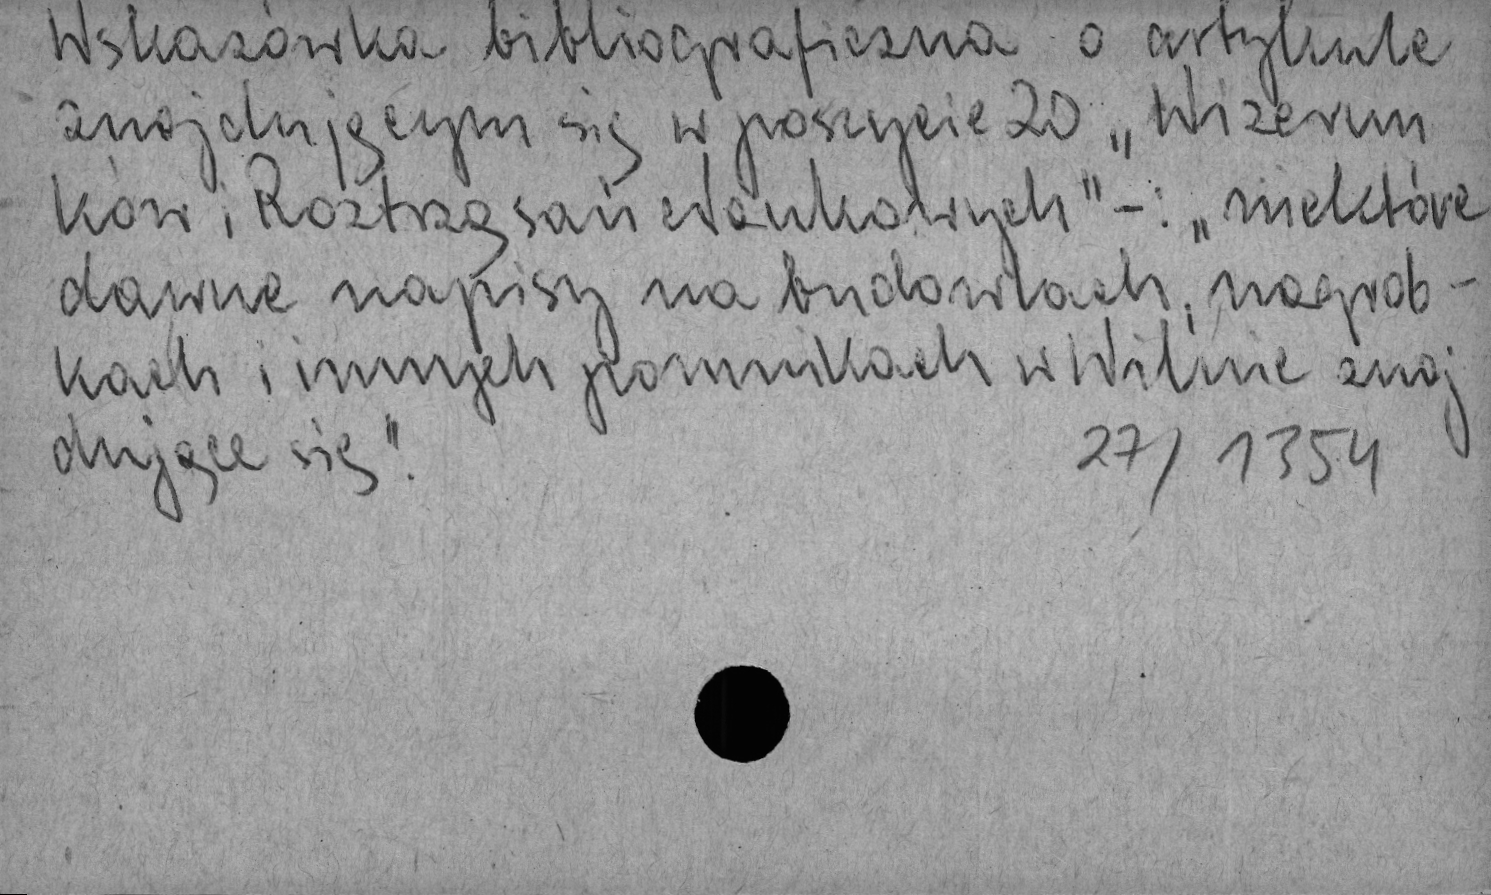 Wskazówka bibliograficzna o artykule
znajdującym się w poszycie 20 „Wizerun
ków i Roztrząsań Naukowych" -: „niektóre
dawne napisy na budowlach, nagrob-
kach i innych pomnikach w Wilnie znaj
dujące się".
27/ 1354